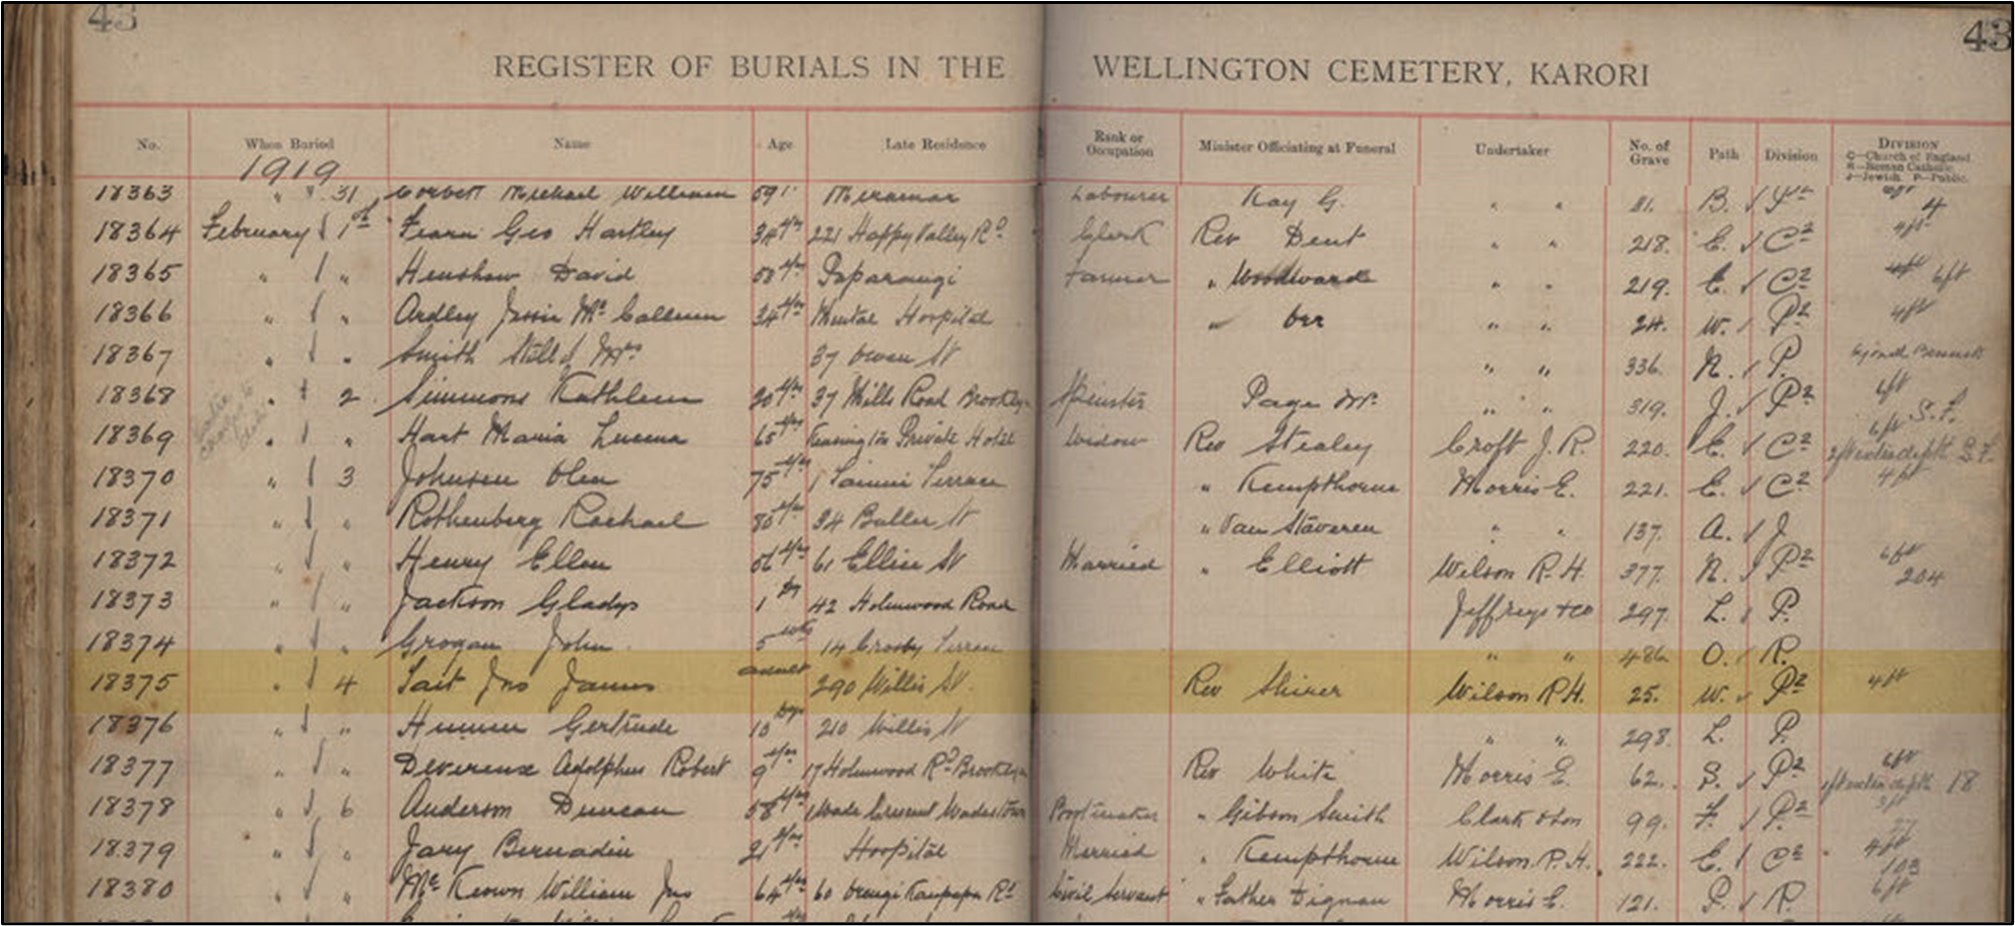 43 43
REGISTER OF BURIALS IN THE WELLINGTON CEMETERY, KARORI
No. When Buried Name Age Late Residence Rank or Occupation Minister Officiating at Funeral Undertaker No. of Grave Path Division DIVISION
C—Church of England
R—Roman Catholic
J—Jewish P—Public.
1919
18363 " " 31 Corbett Michael William 59 Miramar Labourer Kay G. " " 81. B. 4
18364 February 1st Fearn Geo Hartley 34 yrs 221 Happy Valley Rd Clerk Rev Dent " " 218. E. C2 4ft
18365 " " Henshaw David 58 yrs Paparangi Farmer " Woodward " " 219. E. C2 4ft 6ft
18366 " " Ardley Jessie Mc Callum 34 yrs Mental Hospital " Orr " " 24. W. P2 4ft
18367 " " Smith Still d Mrs 37 Owen St " " 336. N. P.
18368 " 2 Simmons Kathleen 20 yrs 37 Mills Road Brooklyn Spinster Page Mr. " " 319. J. P2 6ft
18369 " " Hart Maria Lucena 65 yrs Kensington Private Hotel Widow Rev Stealey Croft J. R. 220. E. C2 6ft S.F.
18370 " 3 Johnsen Olen 75 yrs 1 Terrace " Kempthorne Morris E. 221. E. C2 4ft
18371 " " Rothenberg Rachael 80 yrs 34 Buller St " Van Staveren " " 137. A. J
18372 " " Henry Ellen 56 yrs 61 Ellice St Married " Elliott Wilson R. H. 377. N. P2 6ft 204
18373 " " Jackson Gladys 1 Dy 42 Holmwood Road Jeffreys & Co 297. L. P.
18374 " " Grogan John 5 wks 14 Crosby Terrace " " 486. O. R.
18375 " 4 Tait Jno James adult 290 Willis St. Rev Shirer Wilson R H. 25. W. P2 4ft
18376 " " Gertrude 10 Dys 210 Willis St " " 298. L. P.
18377 " " Devereux Adolphus Robert 9 yrs 17 Holmwood Rd Brooklyn Rev White Morris E. 62. S. P2 6ft 1ft extra depth 18
18378 " 6 Anderson Duncan 58 yrs 1 Wade Crescent Wadestown Bootmaker " Gibson Smith Clark & Son 99. F. P2
18379 " " Jary Bernadin 21 yrs Hospital Married " Kempthorne Wilson R. H. 222. E. C2 4ft 103
18380 " " Mc Keown William Jno 64 yrs 60 Orangi Kaupapa Rd Civil Servant " Father Dignan Morris E. 121. P. R. 6ft